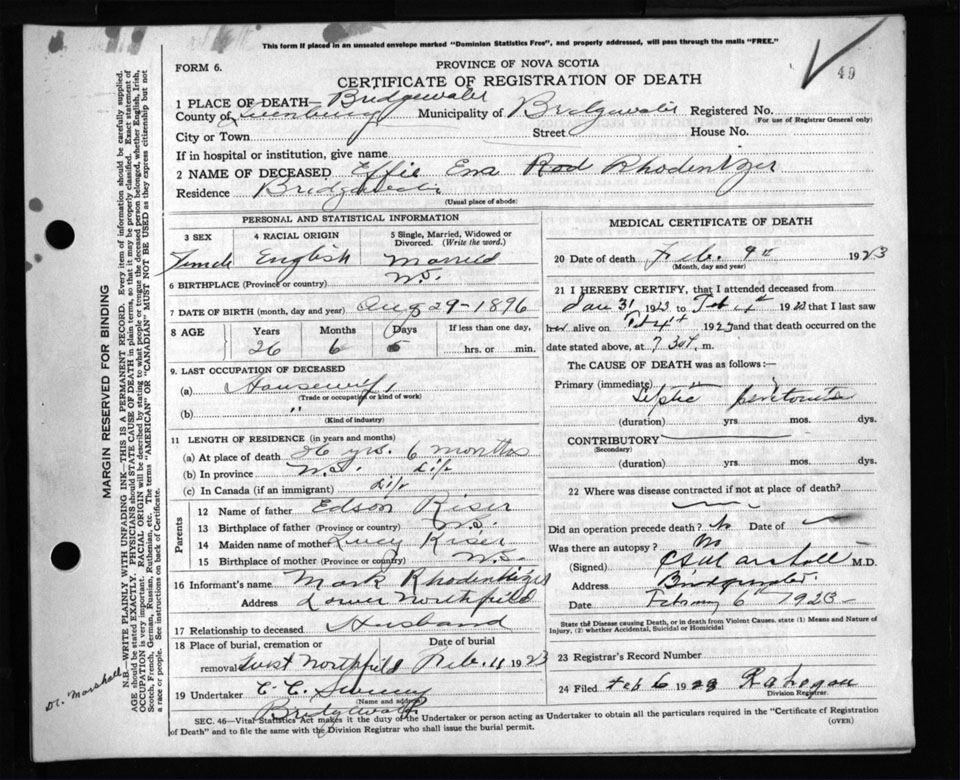 This form if placed in an unsealed envelope marked "Dominion Statistics Free", and properly addressed, will pass through the mails "FREE."
49
FORM 6.
PROVINCE OF NOVA SCOTIA
CERTIFICATE OF REGISTRATION OF DEATH
1 PLACE OF DEATH— Bridgewater
County of Lunenburg Municipality of Bridgewater Registered No.
(For use of Registrar General only)
City or Town Street House No.
If in hospital or institution, give name
2 NAME OF DECEASED Effie Ena Rod Rhodenizer
Residence Bridgewater
(Usual place of abode)
PERSONAL AND STATISTICAL INFORMATION
3 SEX 4 RACIAL ORIGIN 5 Single, Married, Widowed or Divorced. (Write the word.)
Female English Married
6 BIRTHPLACE (Province or country) N.S.
7 DATE OF BIRTH (month, day and year) Aug 29-1896
8 AGE Years Months Days If less than one day,
26 6 5 hrs. or min.
9. LAST OCCUPATION OF DECEASED
(a) Housewife
(Trade or occupation or kind of work)
(b) "
(Kind of industry)
11 LENGTH OF RESIDENCE (in years and months)
(a) At place of death 26 yrs. 6 months
(b) In province N.S. Life
(c) In Canada (if an immigrant) Life
Parents
12 Name of father Edson Riser
13 Birthplace of father (Province or country) N.S.
14 Maiden name of mother Lucy Riser
15 Birthplace of mother (Province or country) N.S.
16 Informant's name Mark Rhodenizer
Address Lower Northfield
17 Relationship to deceased Husband
18 Place of burial, cremation or Date of burial
removal West Northfield Feb. 11 1923
19 Undertaker C. C. Sweeny
(Name and address)
Bridgewater
MEDICAL CERTIFICATE OF DEATH
20 Date of death Feb. 9th 1923
(Month, day and year)
21 I HEREBY CERTIFY, that I attended deceased from
Jan 31 1923 to Feb 4th 1923 that I last saw
her alive on Feb 4th 1923 and that death occurred on
date stated above, at 7 30 m.
The CAUSE OF DEATH was as follows:—
Primary (immediate)
Septic peritonitis
(duration) yrs mos. dys.
CONTRIBUTORY
(Secondary)
(duration) yrs mos. dys.
22 Where was disease contracted if not at place of death?
Did an operation precede death? No Date of
Was there an autopsy? No
(Signed) C S Marshall M.D.
Address Bridgewater.
Date February 6 1923
State the Disease causing Death, or in death from Violent Causes. state (1) Means and Nature of Injury, (2) whether Accidental, Suicidal or Homicidal
23 Registrar's Record Number
24 Filed Feb 6 1923
Division Registrar.
SEC. 46—Vital Statistics Act makes it the duty of the Undertaker or person acting as Undertaker to obtain all the particulars required in the "Certificate of Registration
of Death" and to file the same with the Division Registrar who shall issue the burial permit.
(OVER)
MARGIN RESERVED FOR BINDING
N.B.—WRITE PLAINLY WITH UNFADING INK—THIS IS A PERMANENT RECORD. Every item of information should be carefully supplied.
AGE should be stated EXACTLY. PHYSICIANS should STATE CAUSE OF DEATH in plain terms, so that it may be properly classified. Exact statement of
OCCUPATION is very important. RACIAL ORIGIN will be described by stating to what people or tongue the deceased person belonged, whether English, Irish,
Scotch, French, German, Russian, Ruthenian, etc. The terms "AMERICAN" OR "CANADIAN" MUST NOT BE USED as they express citizenship but not
a race or people. See instructions on back of Certificate.
Dr. Marshall